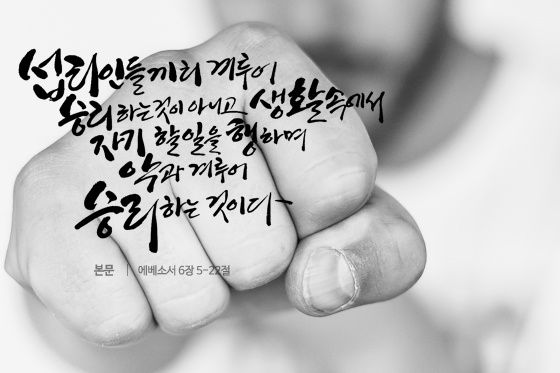 섭리인들끼리 겨루어
승리하는것이 아니고 생활속에서
자기 할일을 행하며
악과 겨루어
승리하는 것이다~
본문 | 에베소서 6장 5-22절